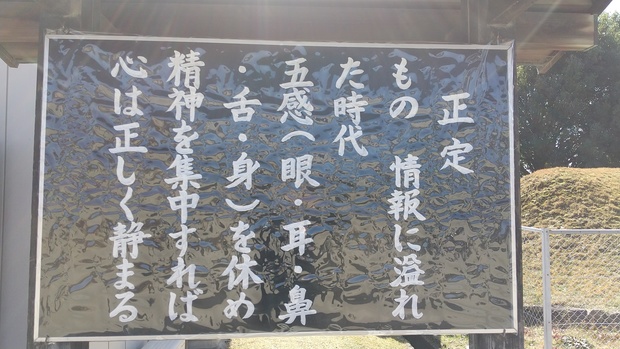 正定
もの　情報に溢れ
た時代
五感(眼・耳・鼻
・舌・身)を休め
精神を集中すれば
心は正しく静まる